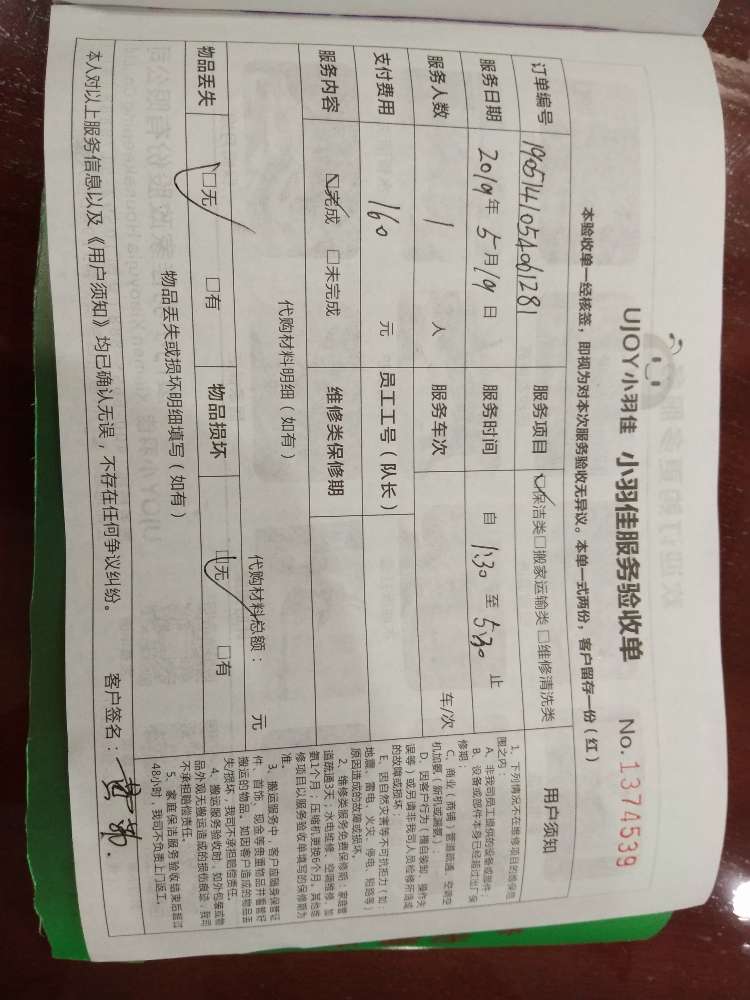 UJOY小羽佳 小羽佳服务验收单 No.1374539
本验收单一经核签，即视为对本次服务验收无异议。本单一式两份，客户留存一份（红）
订单编号 1905141054061281 服务项目 保洁类□搬家运输类□维修清洗类
服务日期 2019年5月19日 服务时间 自 1:30 至 5:30 止
服务人数 1 人 服务车次 车/次
支付费用 160 元 员工工号（队长）
服务内容 完成 □未完成 维修类保修期
代购材料明细（如有） 代购材料总额： 元
物品丢失 □无 □有 物品损坏 □无 □有
物品丢失或损坏明细填写（如有）
本人对以上服务信息以及《用户须知》均已确认无误，不存在任何争议纠纷。 客户签名：
用户须知
1、下列情况不在维修项目的维保范
围之内：
A、非我司员工提供的设备或部件
B、设备或部件本身已经超过出厂保
修期；
C、商业（商铺）管道疏通、空调空
机加氨（新机或漏氨）
D、因客户行为（擅自装卸、操作失
误等）或另请非我司人员检修所造成
的故障或损坏；
E、因自然灾害等不可抗拒力（如：
地震、雷电、火灾、停电、短路等）
原因造成的故障或损坏。
2、维修类服务免费保修期：家庭管
道疏通3天；水电维修、空调维修、加
氨1个月，压缩机更换6个月。其他维
修项目以服务验收单填写的保修期为
准。
3、搬运服务中，客户应随身保管证
件、首饰、现金等贵重物品并看管好
搬运的物品。如因客户造成的物品丢
失/损坏，我司不承担赔偿责任。
4、搬运服务验收时，如外包装或物
品外观无搬运造成的损伤痕迹，我司
不承担赔偿责任。
5、家庭保洁服务验收结束后超过
48小时，我司不负责上门返工。